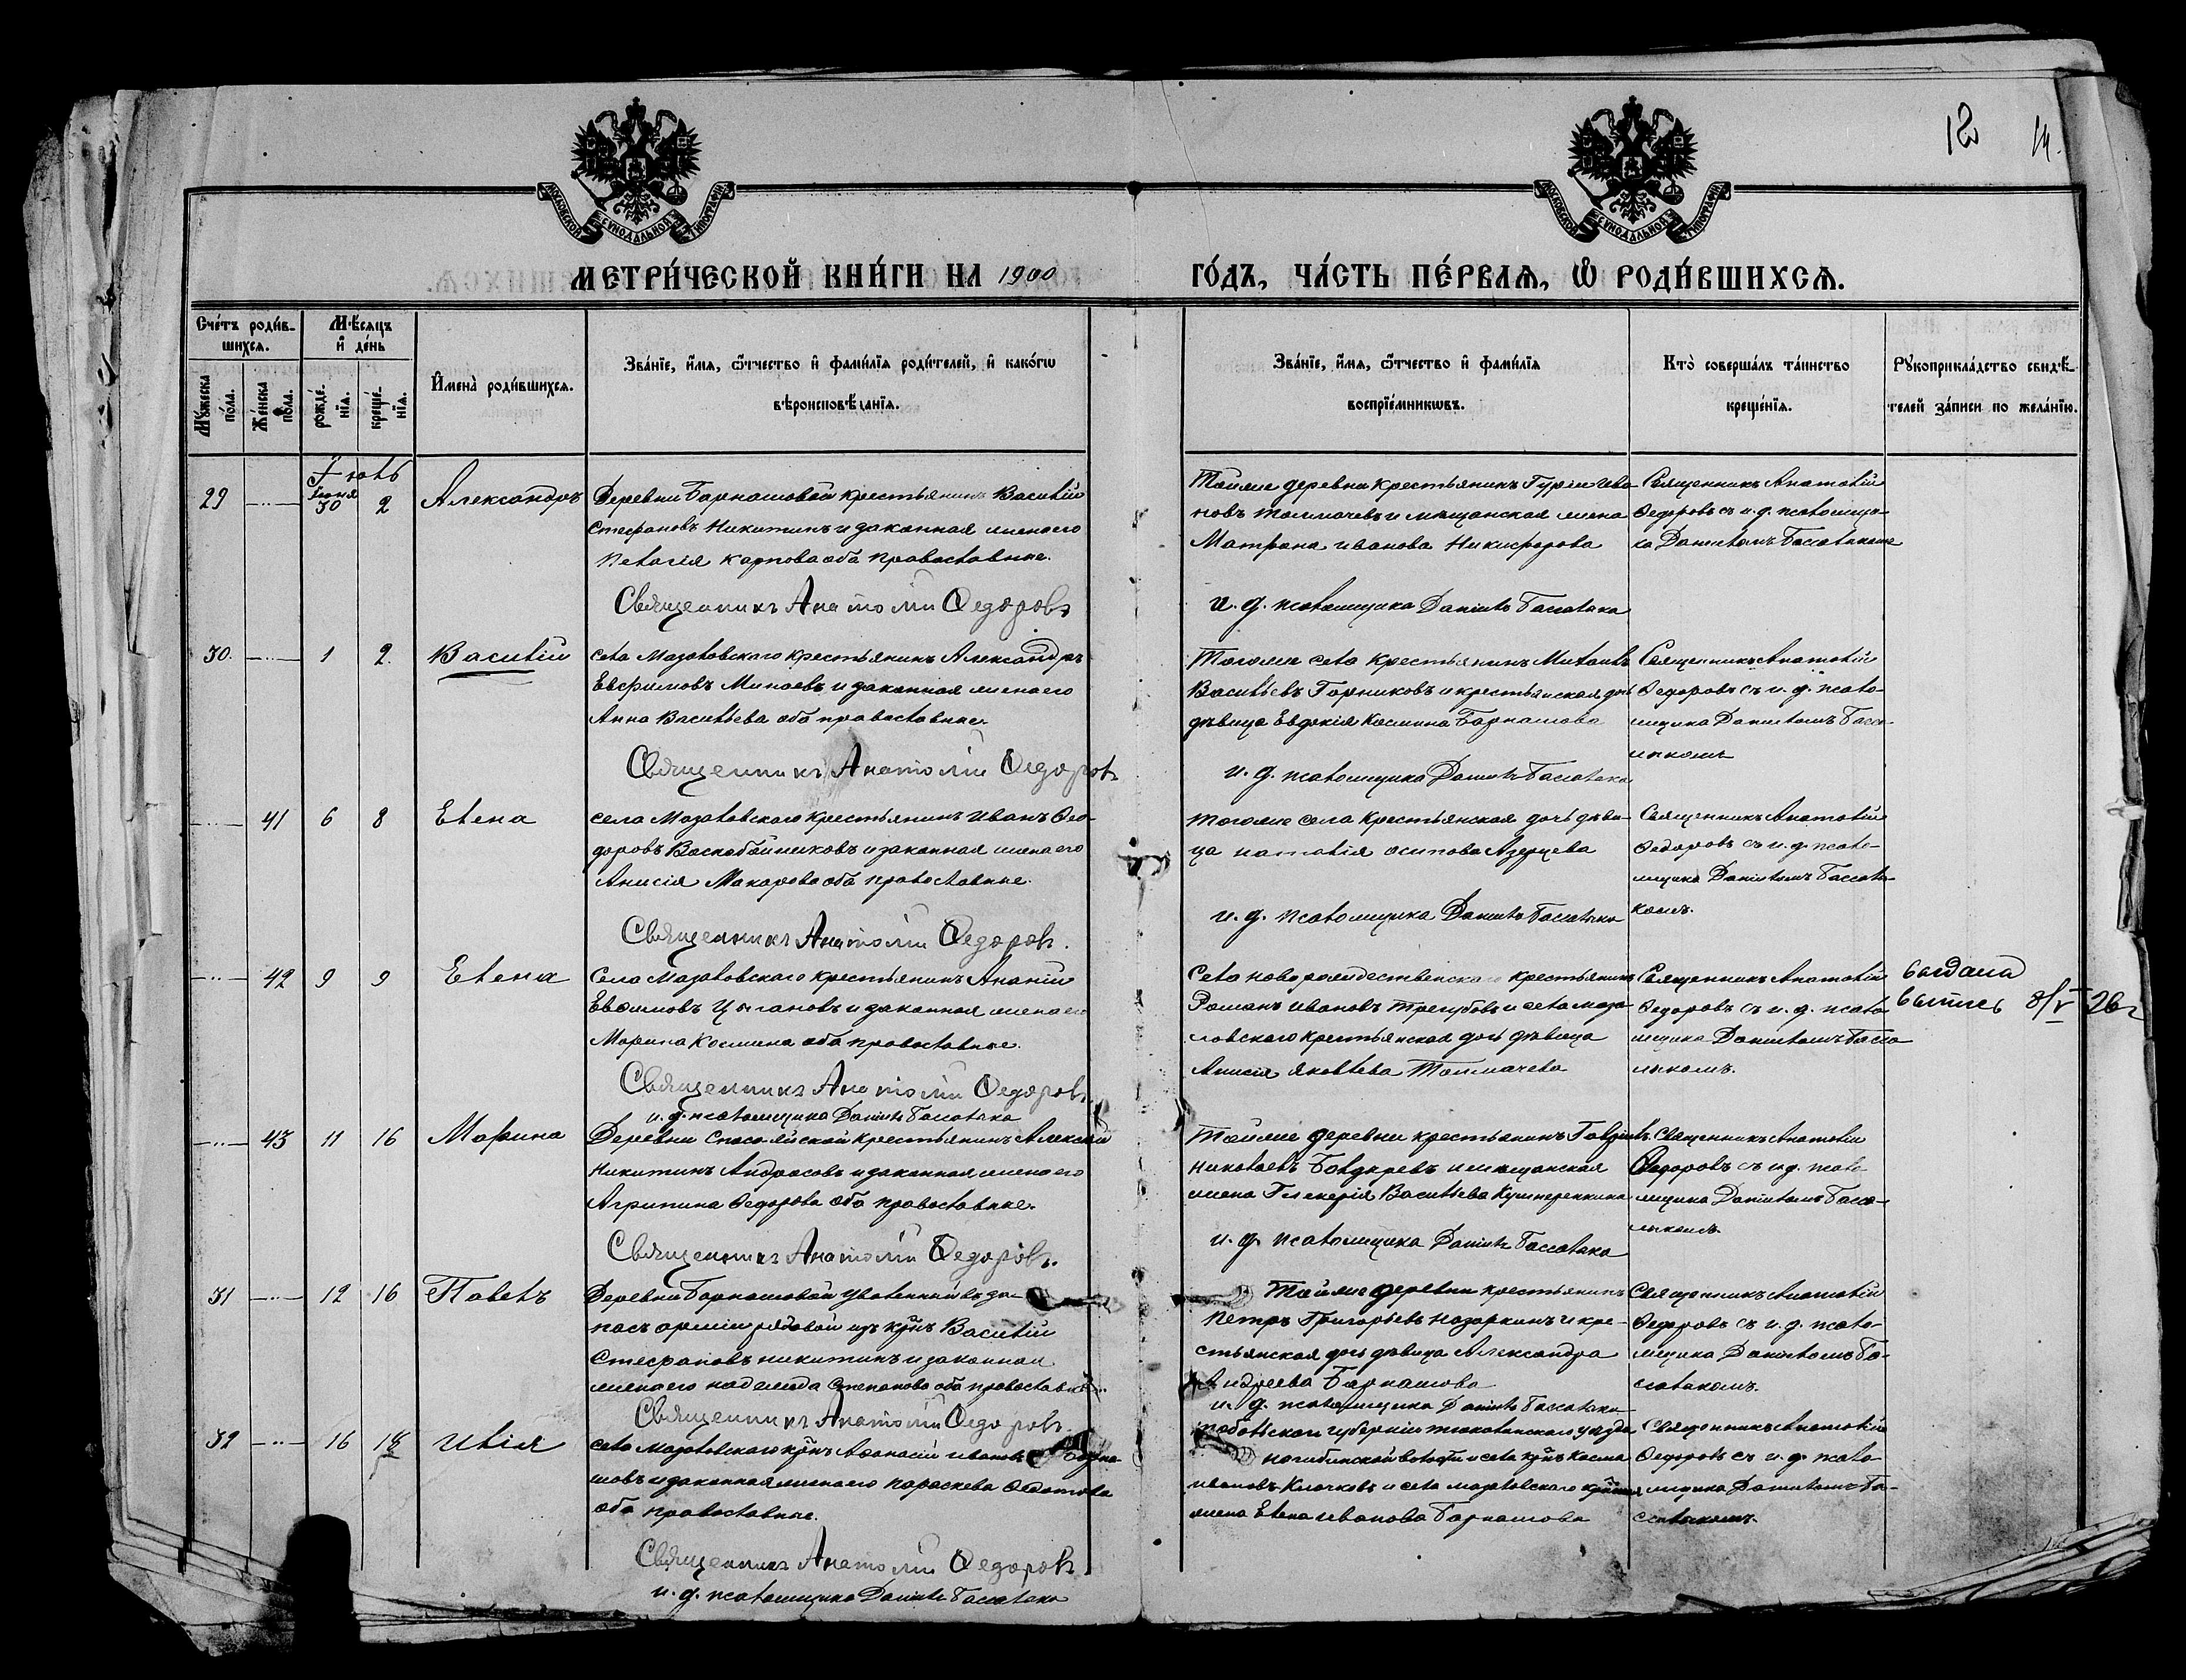 МОСКОВСКОЙ СѴНОДАЛЬНОЙ ТИПОГРАФІИ
МОСКОВСКОЙ СѴНОДАЛЬНОЙ ТИПОГРАФІИ
МЕТРИ́ЧЕСКОЙ КНИ́ГИ НА 1900 ГО́ДЪ, ЧА́СТЬ ПЕ́РВАѦ, Ѡ РОДИ́ВШИХСѦ.
Сче́тъ роди́в-
шихсѧ.
Мѣ́сѧцъ
и҆ де́нь
Мꙋ́жеска
по́ла.
Же́нска
по́ла.
рожде́-
нїѧ.
креще́-
нїѧ.
И҆мена̀ роди́вшихсѧ.
Зва́нїе, и҆́мѧ, ѻ҆́тчество и҆ фами́лїѧ роди́телей, и҆ како́гѡ
вѣроисповѣ́данїѧ.
Зва́нїе, и҆́мѧ, ѻ҆́тчество и҆ фами́лїѧ
воспрїе́мникѡвъ.
Кто̀ соверша́лъ та́инство
креще́нїѧ.
Рꙋкоприкла́дство свидѣ́-
телей за́писи по жела́нїю.
Іюль
29 Іюня 30 2 Александръ
Деревни Барнашовой крестьянинъ Василій
Стефановъ Никитинъ и законная жена его
Пелагія Карпова оба православные.
Священникъ Анатолій Федоровъ
Тойже деревни крестьянинъ Гурій Ива-
новъ Толмачевъ и мещанская жена
Матрона Иванова Никифорова
и. д. псаломщика Даніилъ Бассалыка
Священникъ Анатолій
Федоровъ съ и. д. псаломщи-
ка Даниломъ Бассалыкоме
30. 1 2. Василій
села Мазаловскаго крестьянинъ Александръ
Евфимовъ Минаевъ и законная жена его
Анна Васильева оба православные.
Священникъ Анатолій Федоровъ
Тогоже села крестьянинъ Михаилъ
Васильевъ Горниковъ и крестьянская дочь
дѣвица Евдокія Космина Барнашова
и. д. псаломщика Даніилъ Бассалыка
Священникъ Анатолій
Федоровъ съ и. д. псало-
мщика Даниломъ Басса-
лыкомъ
41 6 8 Елена
села Мазаловскаго крестьянинъ Иванъ Фео-
доровъ Воскобойниковъ и законная жена его
Анисія Макарова оба православные.
Священникъ Анатолій Федоровъ.
тогоже села крестьянская дочь дѣви-
ца Наталія Осипова Азерцева
и. д. псаломщика Даніилъ Бассалыка
Священникъ Анатолій
Федоровъ съ и. д. псало-
мщика Даниломъ Бассалы-
комъ.
42 9 9 Елена
Села Мазаловскаго крестьянинъ Ананій
Евфимовъ Цыгановъ и законная жена его
Марина Космина оба православные.
Священникъ Анатолій Федоровъ
и. д. псаломщика Даніилъ Бассалыка
Села Новорождественскаго крестьянинъ
Романъ Ивановъ Трегубовъ и села Маза-
ловскаго крестьянская дочь дѣвица
Анисія Яковлева Толмачева
Священникъ Анатолій
Федоровъ съ и. д. псало-
мщика Даниломъ Басса
лыкомъ.
выдана
выпись 8/V 26 г
43 11 16 Марина
Деревни Спасо-яйской крестьянинъ Алексѣй
Никитинъ Андрасовъ и законная жена его
Агрипина Федорова оба православные.
Священникъ Анатолій Федоровъ.
Тойже деревни крестьянинъ Гавріилъ
Николаевъ Болдыревъ и мещанская
жена Гликерія Васильева Кушперенкина
и. д. псаломщика Даніилъ Бассалыка
Священникъ Анатолій
Федоровъ съ и д. псало
мщика Даниломъ Басса-
лыкомъ.
31 12 16 Павелъ
Деревни Барнашовой уволенный въ за-
пасъ арміи рядовой изъ крнъ Василій
Стефановъ Никитинъ и законная
жена его Надежда Степанова оба православные.
Священникъ Анатолій Федоровъ
Тойже деревни крестьянинъ
Петръ Григорьевъ Назаркинъ и кре-
стьянская дочь дѣвица Александра
Андреева Барнашова
и. д. псаломщика Даніилъ Бассалыка
Священникъ Анатолій
Федоровъ съ и. д. псало-
мщика Даниломъ Ба-
салыкомъ.
32 16 18 Илія
села Мазаловскаго крнъ Афанасій Ивановъ Барна-
шовъ и законная жена его Параскева Федотова
оба православные.
Священникъ Анатолій Федоровъ
и. д. псаломщика Даніилъ Бассалыка
тобольской губерніи тюкалинскаго уезда
волости и села крнъ Косма
Ивановъ Клочковъ и села мазаловскаго
жена Елена Иванова Барнашова
Священникъ Анатолій
Федоровъ съ и. д. псало-
мщика Даниломъ Ба-
ссалыкомъ.